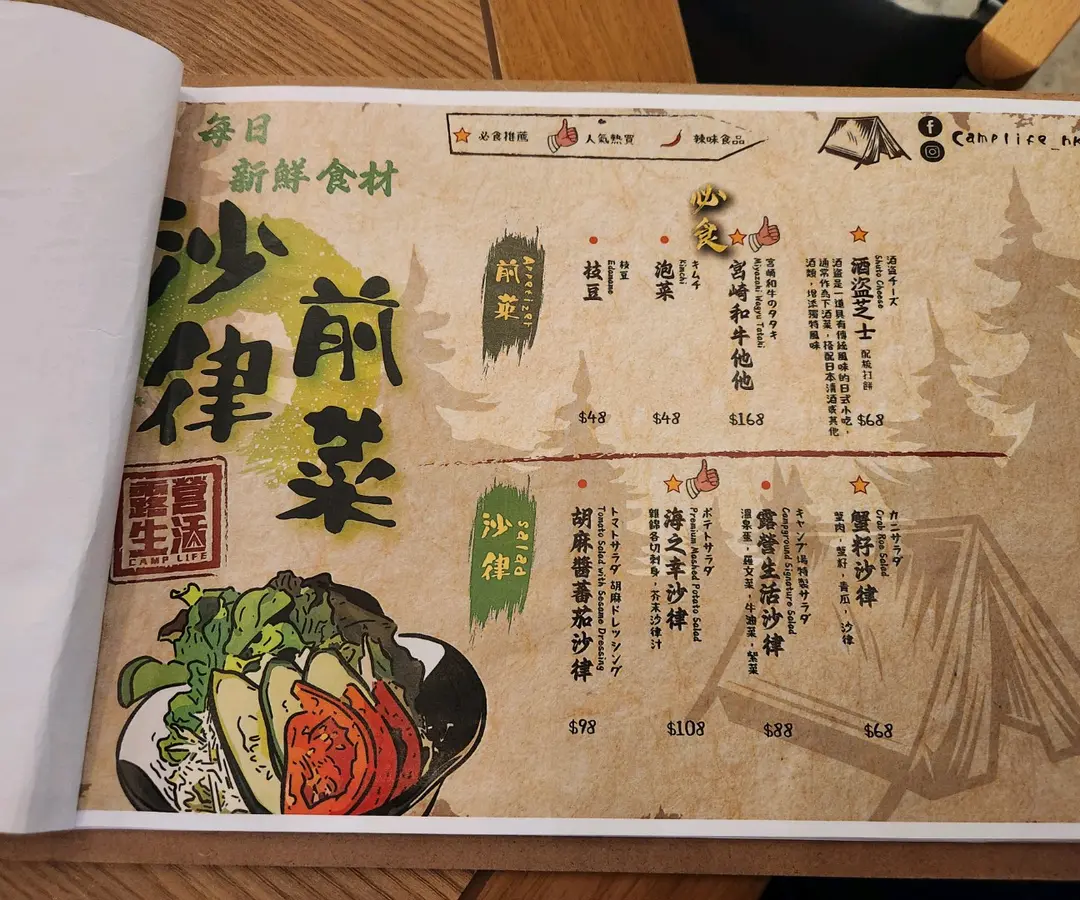 每日
新鮮食材
沙律
前菜
露營生活
CAMP LIFE
必食推薦
人氣熱賣
辣味食品
Camplife_hk
前菜
Appetizer
必食
酒盜チーズ
Shuto Cheese
酒盜芝士 配梳打餅
酒盜是一道具有傳統風味的日式小吃，
通常作為下酒菜，搭配日本清酒或其他
酒類，增添獨特風味
$68
宮崎和牛のタタキ
Miyazaki Wagyu Tataki
宮崎和牛他他
$168
キムチ
Kimchi
泡菜
$48
枝豆
Edamame
枝豆
$48
沙律
Salad
カニサラダ
Crab Roe Salad
蟹籽沙律
蟹肉，蟹籽，青瓜，沙律
$68
キャンプ場特製サラダ
Campground Signature Salad
露營生活沙律
溫泉蛋，羅文菜，牛油菜，紫菜
$88
ポテトサラダ
Premium Mashed Potato Salad
海之幸沙律
雜錦各切刺身，芥末沙律汁
$108
トマトサラダ 胡麻ドレッシング
Tomato Salad with Sesame Dressing
胡麻醬蕃茄沙律
$98